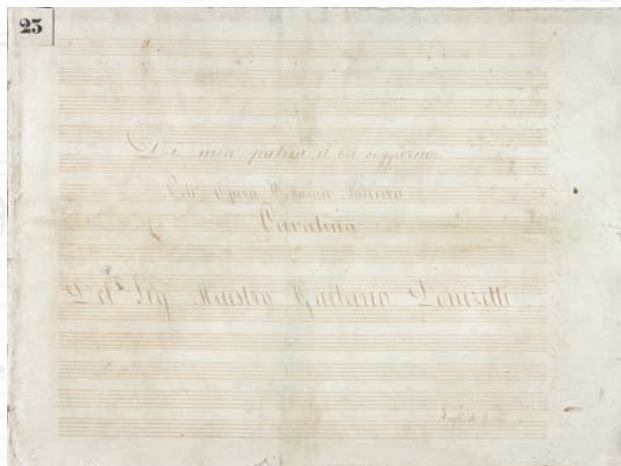 23
Di mia patria il bel soggiorno
Nell' Opera Marino Faliero
Cavatina
Del Sig Maestro Gaetano Donizetti